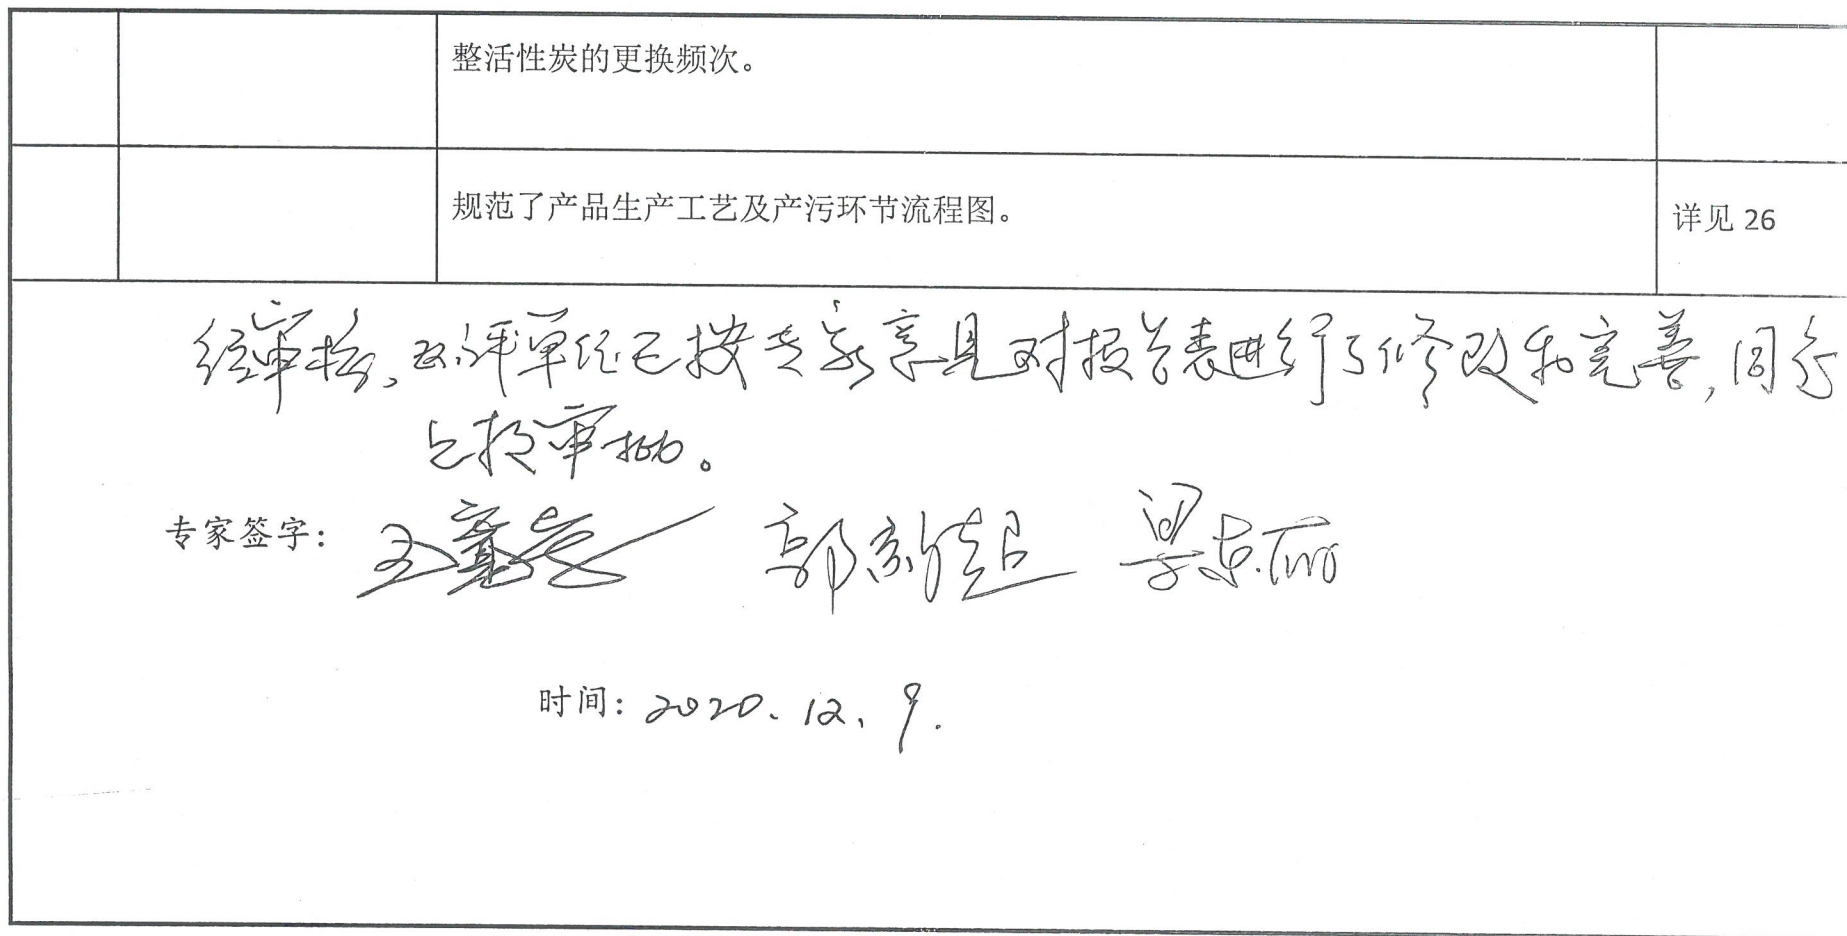 整活性炭的更换频次。
规范了产品生产工艺及产污环节流程图。
详见 26
经审核、环评单位已按专家意见对报告表进行了修改和完善,同意
上报审批。
专家签字:
时间: 2020.12.9.